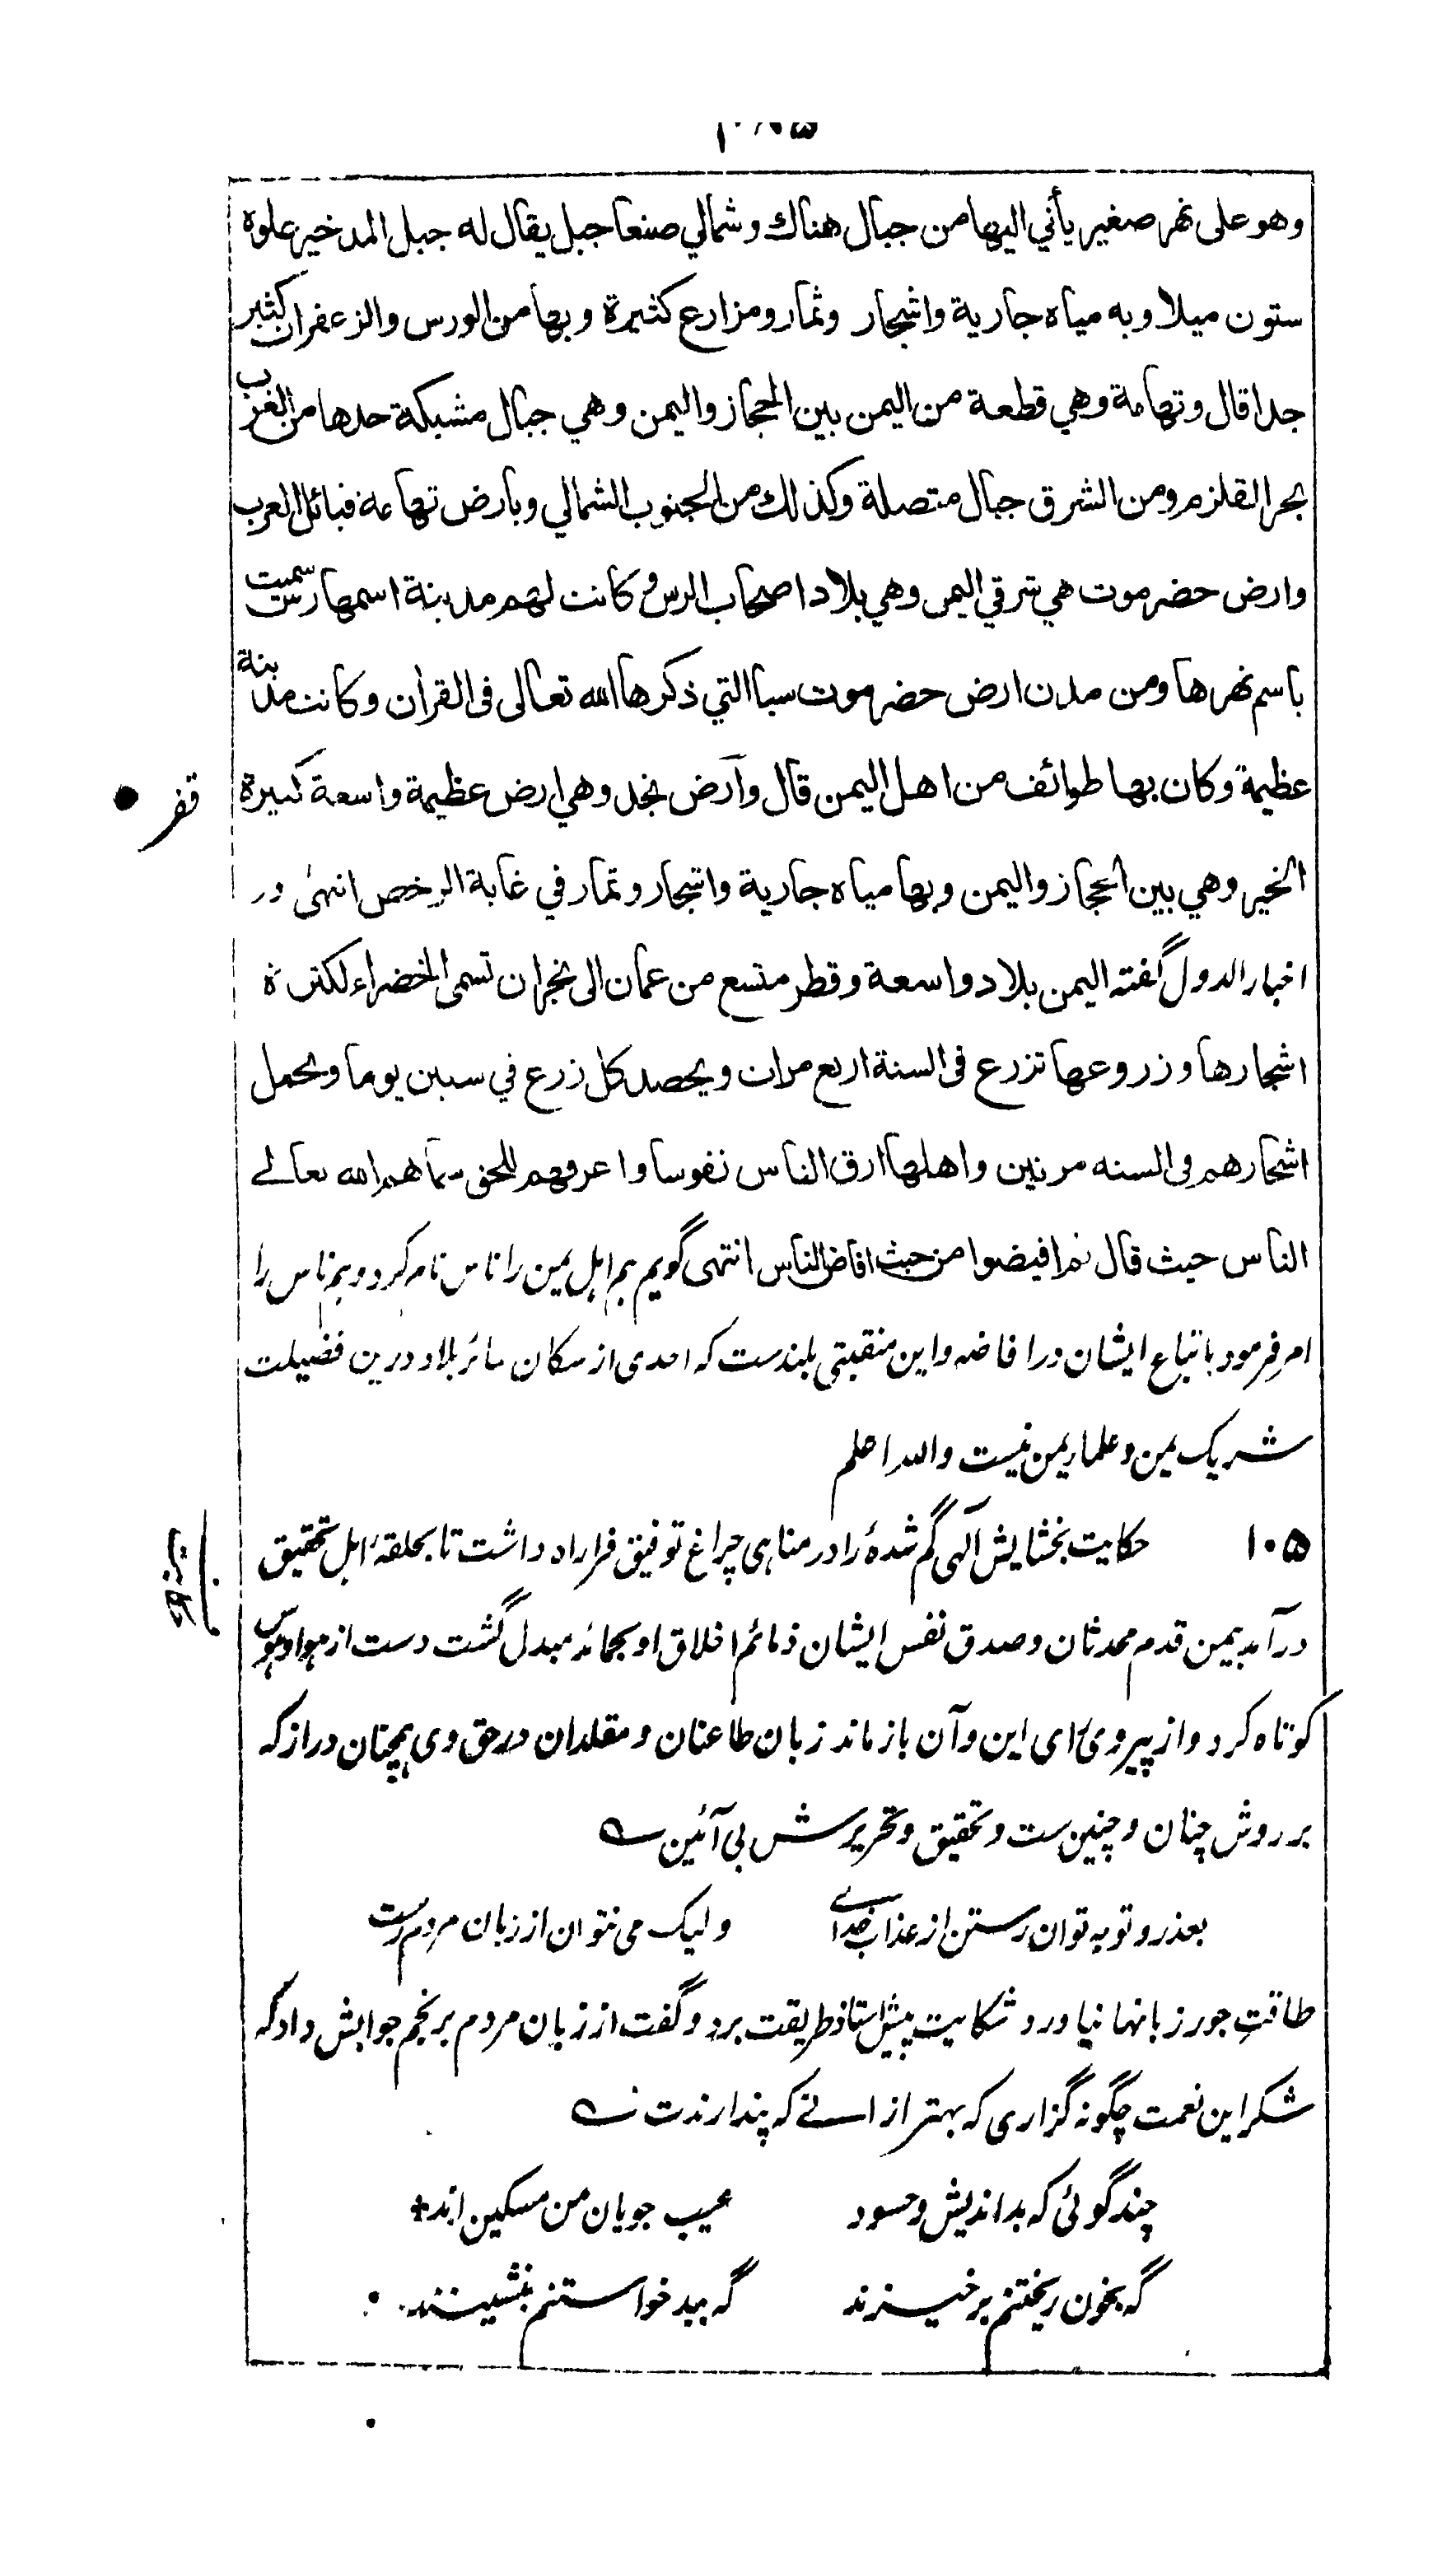 وهو على نهر صغير يأتي اليها من جبال هناك وشمالي صنعا جبل يقال له جبل المدخير علوه
ستون ميلا وبه مياه جارية واشجار وثمار ومزارع كثيرة وبها من الورس والزعفران كثير
جدا قال وتهامة وهي قطعة من اليمن بين الحجاز واليمن وهي جبال مشبكة حدها من الغرب
بحر القلزم ومن الشرق جبال متصلة وكذلك من الجنوب الشمالي وبارض تهامة قبائل العرب
وارض حضرموت هي شرقي اليمن وهي بلاد اصحاب الرس وكانت لهم مدينة اسمها رس سميت
باسم نهرها ومن مدن ارض حضرموت سبا التي ذكرها الله تعالى فى القرأن وكانت مدينة
عظيمة وكان بها طوائف من اهل اليمن قال وآرض نجد وهي ارض عظيمة واسعة كبيرة
قفر
الخير وهي بين الحجاز واليمن وبها مياه جارية واشجار وثمار في غاية الرخص انتهىٰ ور
اخبار الدول گفته اليمن بلاد واسعة وقطر متسع من عمان الى نجران تسمى الخضراء لكثرة
اشجارها وزروعها تزرع فى السنة اربع مرات ويحصد كل زرع في ستين يوما ويحمل
اشجارهم فى السنه مرتين واهلها ارق الناس نفوسا واعرفهم للحق سماهم الله تعالے
الناس حيث قال ثم افيضوا من حيث افاض الناس انتهى گويم هم اهل يمن را ناس نام كرد وهم ناس را
امر فرمود باتباع ايشان در افاضه واين منقبتى بلندست كه احدى از سكان سائر بلاد درين فضيلت
شريك يمن وعلماء يمن نيست والله اعلم
١٠٥ حكايت بخشايش آلهى گم شدۀ را در مناهى چراغ توفيق فرا راه داشت تا بحلقۀ اهل تحقيق
درآمد بيمن قدم محدثان وصدق نفس ايشان ذمائم اخلاق او بحمائد مبدل گشت دست از هوا وهوس
كوتاه كرد واز پيروى راى اين وآن باز ماند زبان طاعنان ومقلدان در حق وى همچنان دراز كه
بر روش چنان وچنين ست وتحقيق وتحريرش بى آئين ـه
بعذر وتوبه توان رستن از عذاب خداے وليك مى نتوان از زبان مردم رست
طاقتِ جور زبانها نياورد وشكايت پيش استاذ طريقت برد وگفت از زبان مردم برنجم جوابش داد كه
شكر اين نعمت چگونه گزارى كه بهتر از انے كه پندارندت ـه
چند گوئى كه بد انديش وحسود عيب جويان من مسكين اند
گه بخون ريختنم برخيزند گه ببد خواستنم بنشينند